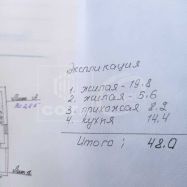 Экспликация
1. жилая - 19.8
2. жилая - 5.6
3. прихожая 8.2
4. кухня 14,4
Итого ; 48.0